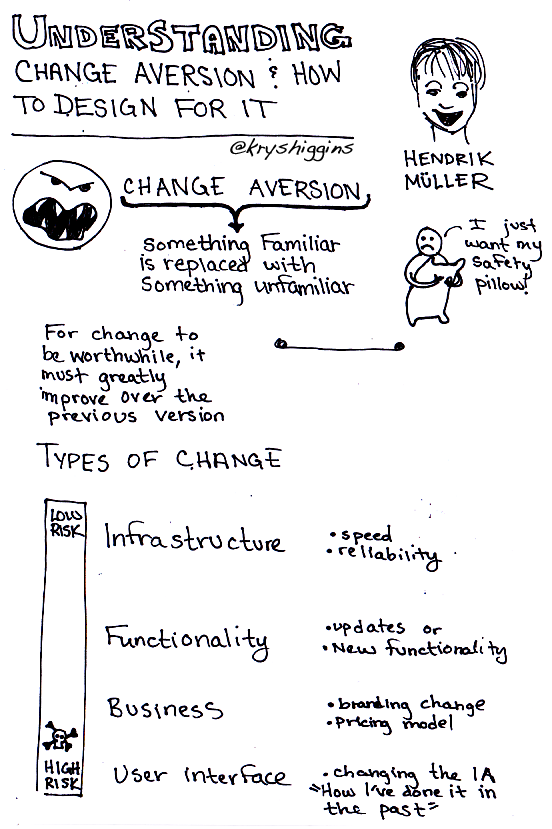 UNDERSTANDING
CHANGE AVERSION & HOW
TO DESIGN FOR IT
@kryshiggins
HENDRIK
MÜLLER
CHANGE AVERSION
Something Familiar
is replaced with
Something unfamiliar
I just
want my
safety
pillow!
For change to
be worthwhile, it
must greatly
improve over the
previous version
TYPES OF CHANGE
LOW
RISK
Infrastructure
• speed
• reliability
Functionality
• updates or
• New functionality
Business
• branding change
• pricing model
HIGH
RISK
User interface
• changing the IA
"How I've done it in
the past"